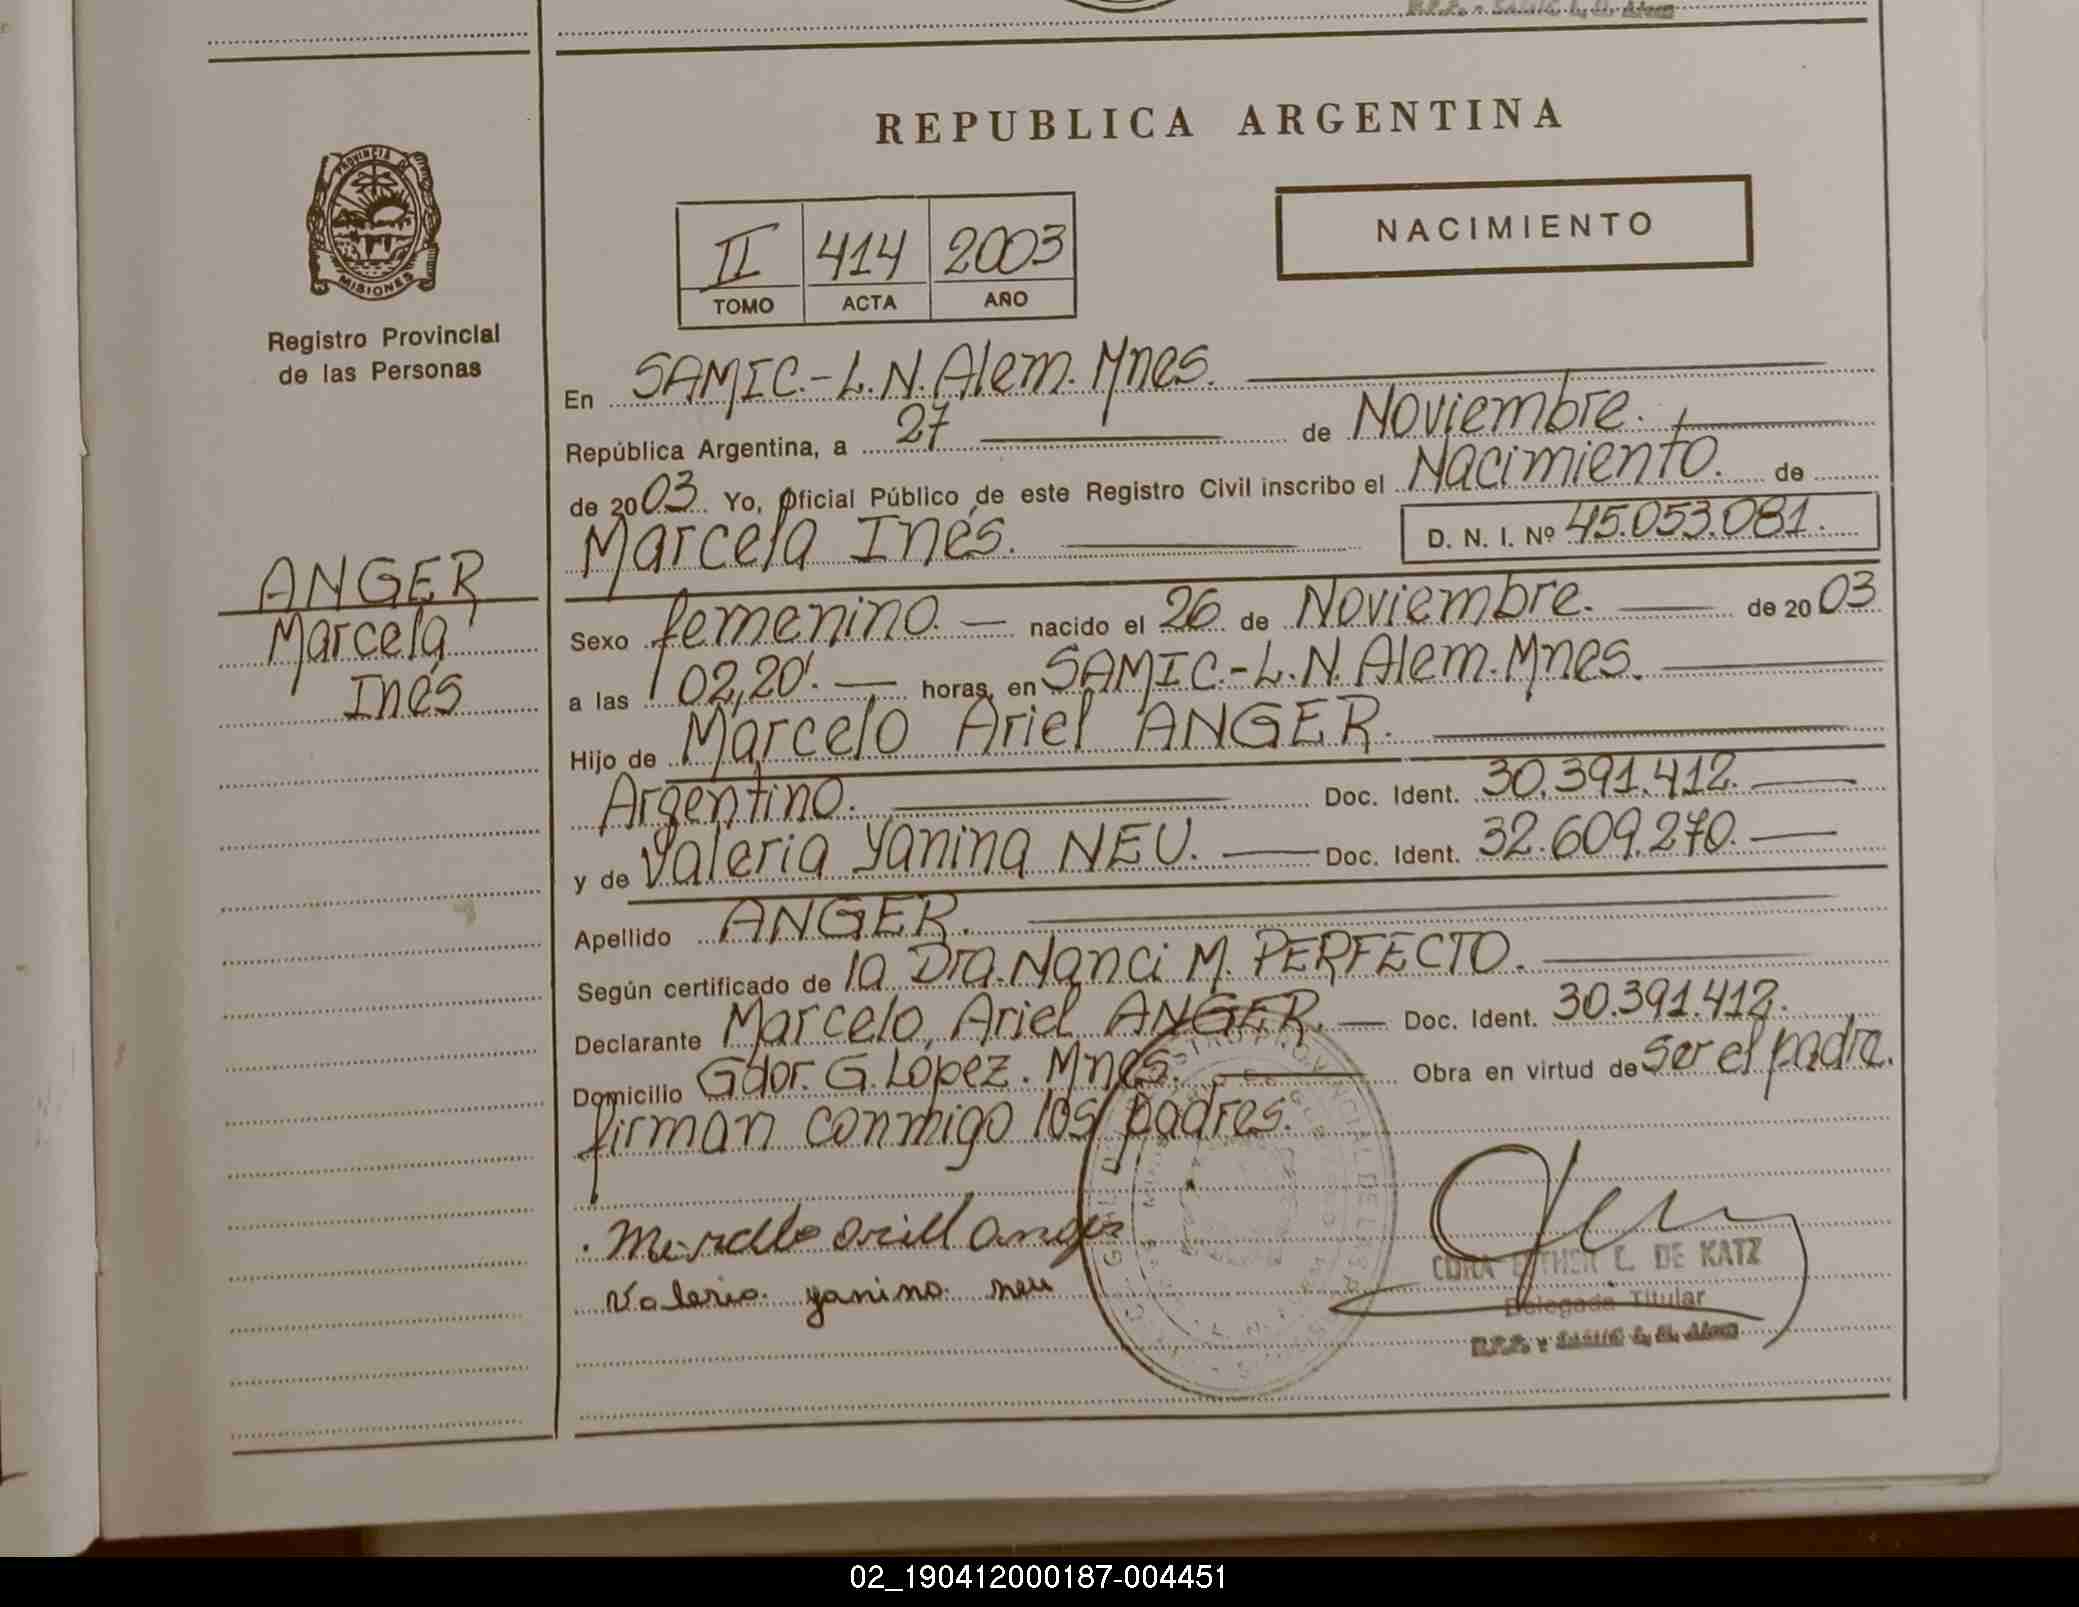 REPUBLICA ARGENTINA
PROVINCIA DE
MISIONES
Registro Provincial
de las Personas
II 414 2003
TOMO ACTA AÑO
NACIMIENTO
ANGER
Marcela
Inés
En SAMIC.-L.N.Alem.Mnes.
República Argentina, a 27 de Noviembre.
de 2003. Yo, Oficial Público de este Registro Civil inscribo el Nacimiento. de
Marcela Inés. D. N. I. Nº 45.053.081.
Sexo femenino. nacido el 26 de Noviembre. de 2003
a las 02,20'. horas, en SAMIC.-L.N.Alem.Mnes.
Hijo de Marcelo Ariel ANGER.
Argentino. Doc. Ident. 30.391.412.
y de Valeria Yanina NEU. Doc. Ident. 32.609.270.
Apellido ANGER.
Según certificado de la Dra.Nanci M. PERFECTO.
Declarante Marcelo Ariel ANGER. Doc. Ident. 30.391.412.
Domicilio Gdor. G. López. Mnes. Obra en virtud de ser el padre.
firman conmigo los padres.
Anger
Valeria yanina neu
C. DE KATZ
Delegada Titular
02_190412000187-004451